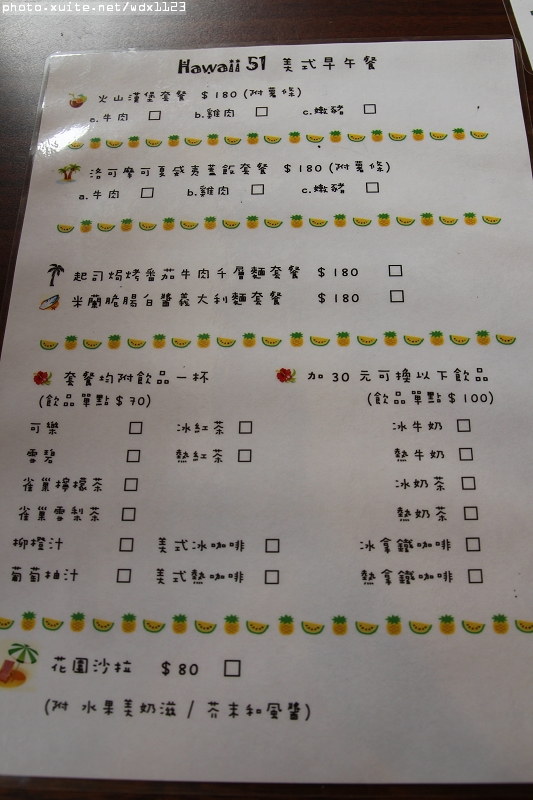 photo.xuite.net/wdx1123
Hawaii 51 美式早午餐
火山漢堡套餐 $180 (附薯條)
a.牛肉 □ b.雞肉 □ c.嫩豬 □
洛可摩可夏威夷蓋飯套餐 $180 (附薯條)
a.牛肉 □ b.雞肉 □ c.嫩豬 □
起司焗烤番茄牛肉千層麵套餐 $180 □
米蘭脆腸白醬義大利麵套餐 $180 □
套餐均附飲品一杯
(飲品單點$70)
可樂 □ 冰紅茶 □
雪碧 □ 熱紅茶 □
雀巢檸檬茶 □
雀巢雪梨茶 □
柳橙汁 □ 美式冰咖啡 □
葡萄柚汁 □ 美式熱咖啡 □
加30元可換以下飲品
(飲品單點$100)
冰牛奶 □
熱牛奶 □
冰奶茶 □
熱奶茶 □
冰拿鐵咖啡 □
熱拿鐵咖啡 □
花園沙拉 $80 □
(附 水果美奶滋 / 芥末和風醬)